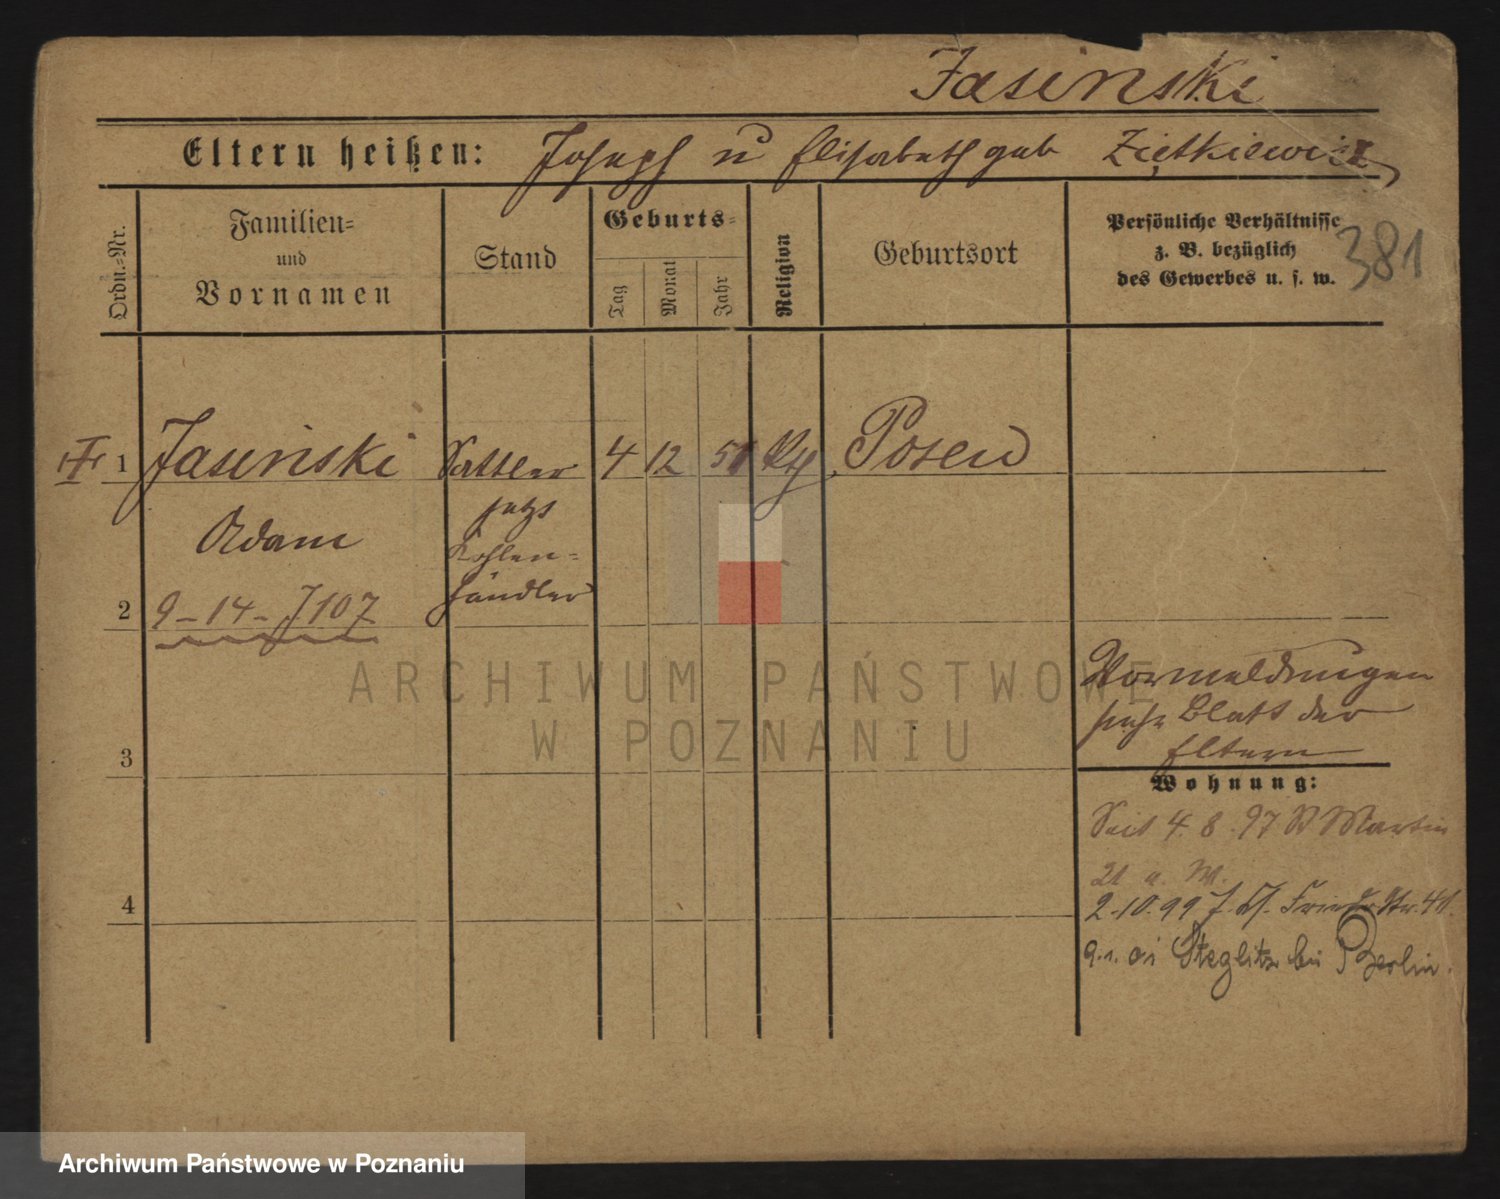 Jasinski
Eltern heißen: Joseph u Elisabeth geb Ziętkiewicz
Ordn.-Nr.
Familien-
und
Vornamen
Stand
Geburts-
Tag
Monat
Jahr
Religion
Geburtsort
Persönliche Verhältnisse
z. B. bezüglich
des Gewerbes u. s. w.
381
1 Jasinski Sattler 4 12 51 Posen
jetzt
Adam
Kohlen-
händler
2 9-14-J107
ARCHIWUM PAŃSTWOWE
W POZNANIU
Vormeldungen
siehe Blatt der
Eltern
3
Wohnung:
Seit 4. 8. 97 St Martin
21 a. W.
4
2.10.99 Friedr. Str. 41.
9.1.01 Steglitz bei Berlin.
Archiwum Państwowe w Poznaniu